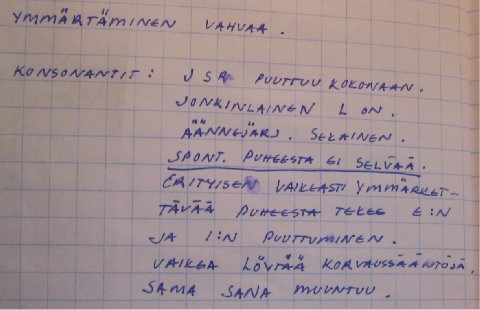 YMMÄRTÄMINEN VAHVAA.
KONSONANTIT: J S R PUUTTUU KOKONAAN.
JONKINLAINEN L ON.
ÄÄNNEJÄRJ. SELAINEN.
SPONT. PUHEESTA EI SELVÄÄ.
ERITYISEN VAIKEASTI YMMÄRRET-
TÄVÄÄ PUHEESTA TEKEE E:N
JA I:N PUUTTUMINEN.
VAIKEA LÖYTÄÄ KORVAUSSÄÄNTÖJÄ.
SAMA SANA MUUNTUU.